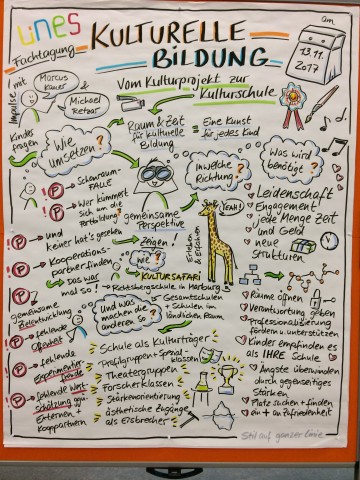 LINES
KULTURELLE
BILDUNG
Fachtagung
am
13.11.
2017
Vom Kulturprojekt zur
Kulturschule
Impulse mit
Marcus
Kauer
&
Michael
Retzar
Kindesfragen
Raum & Zeit
für kulturelle
Bildung
= Eine Kunst
für jedes Kind
Wie
umsetzen?
In welche
Richtung?
Was wird
benötigt?
! P → Schonraum-
FALLE
! P → Wer kümmert
sich um die
Fortbildung?
! P → und
keiner hat's gesehen
! P → Kooperations-
partner finden
gemeinsame
Perspektive
Zeigen!
Wie?
YEAH!
Erleben
& Erfahren
Leidenschaft
Engagement
jede Menge Zeit
und Geld
neue
Strukturen
→ das war
mal so!
KULTURSAFARI
→ Richtsbergschule in Marburg
Gesamtschulen
+ Schulen im
ländlichen Raum
! P
gemeinsame
Zielentwicklung
! P → fehlende
Offenheit
! P → fehlende
Experimentier-
freude
! P → fehlende Wert-
schätzung ggü.
Externen +
Kooppartnern
Und was
machen die
anderen so?
Schule als Kulturträger
Profilgruppen + Spezial-
klassen
Theatergruppen
Forscherklassen
Stärkenorientierung
ästhetische Zugänge
als Eisbrecher
Räume öffnen
Verantwortung geben
Professionalisierung
fördern u. unterstützen
Kinder empfinden es
als IHRE Schule
Ängste überwinden
durch gegenseitiges
Stärken
Platz suchen + finden
ein + an Zufriedenheit
Stil auf ganzer Linie